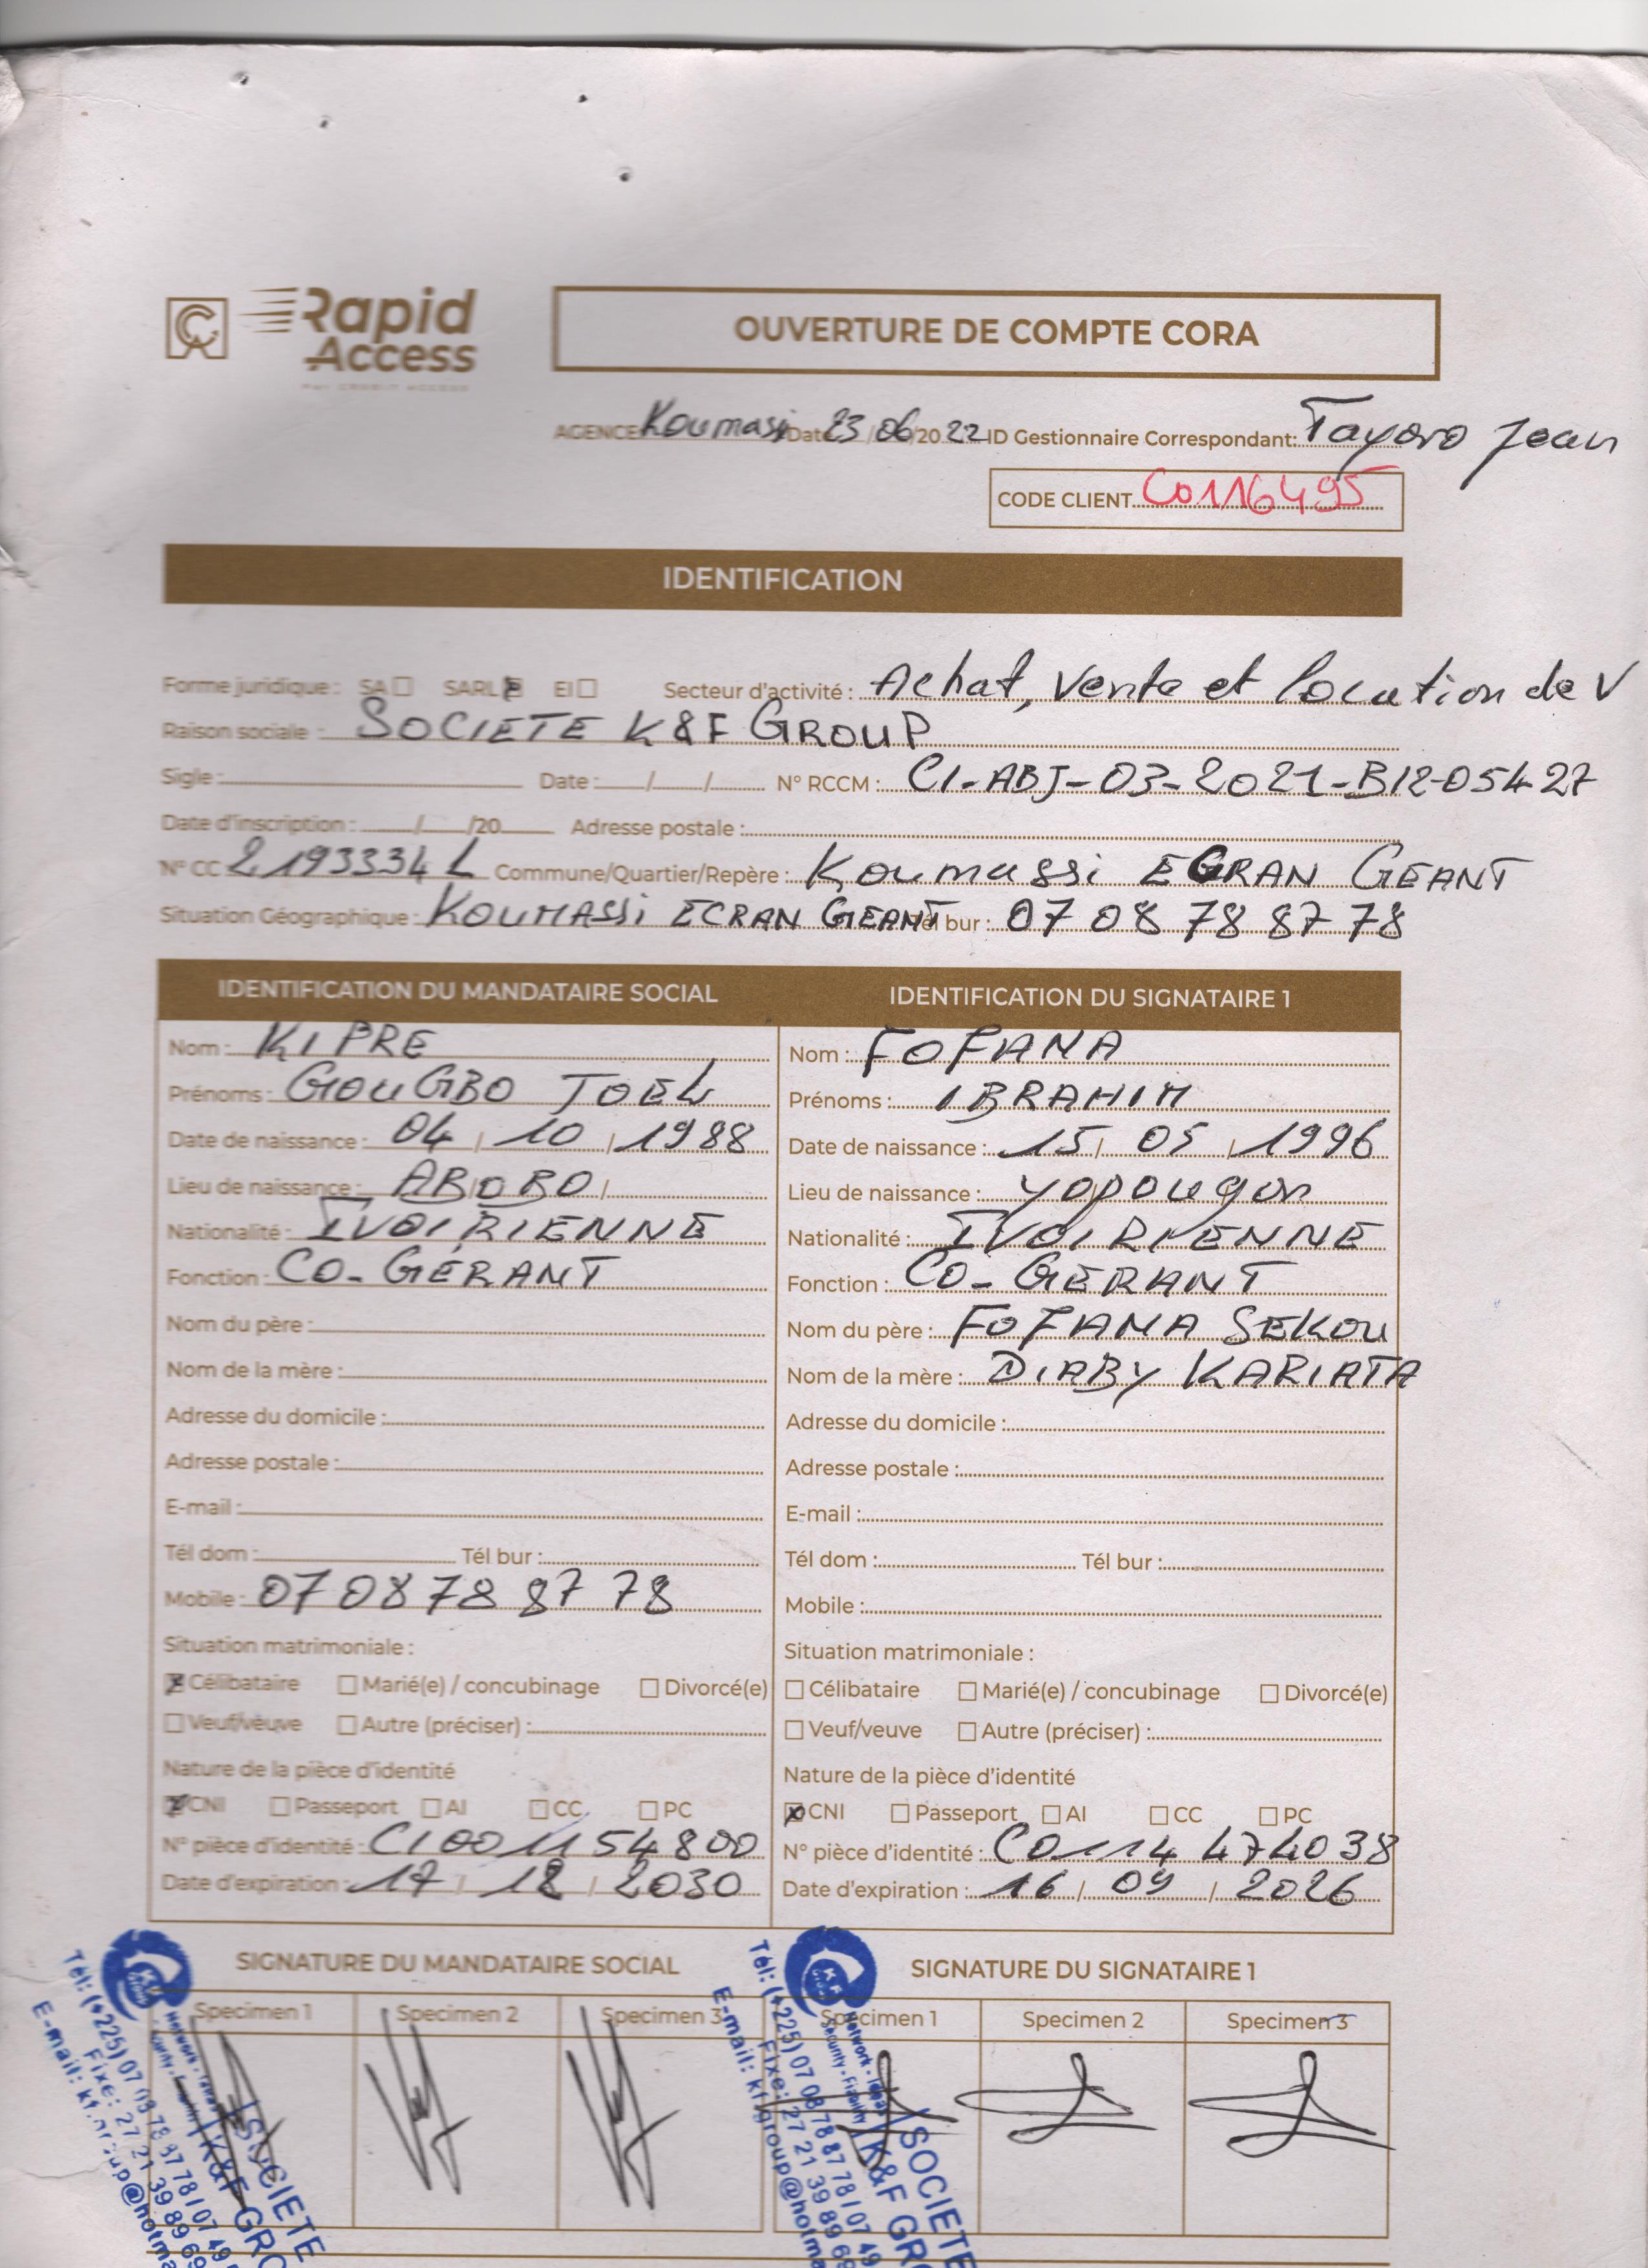 Rapid
Access
OUVERTURE DE COMPTE CORA
AGENCE Koumassi Date 23/06/2022 ID Gestionnaire Correspondant: Tayoro Jean
CODE CLIENT C0116495
IDENTIFICATION
Forme juridique : SA SARL EI Secteur d'activité : Achat, Vente et location de V
Raison sociale : SOCIETE K&F GROUP
Sigle : Date : / / N° RCCM : CI-ABJ-03-2021-B12-05427
Date d'inscription : / /20 Adresse postale :
N° CC 2193334 L Commune/Quartier/Repère : Koumassi ECRAN GEANT
Situation Géographique : KOUMASSi ECRAN GEANT Tél bur : 07 08 78 87 78
IDENTIFICATION DU MANDATAIRE SOCIAL IDENTIFICATION DU SIGNATAIRE 1
Nom : KIPRE Nom : FOFANA
Prénoms : GOUGBO JOEL Prénoms : IBRAHIM
Date de naissance : 04 / 10 / 1988 Date de naissance : 15 / 05 / 1996
Lieu de naissance : ABOBO / Lieu de naissance : yopougon
Nationalité : IVOIRIENNE Nationalité : IVOIRIENNE
Fonction : CO-GERANT Fonction : CO-GERANT
Nom du père : Nom du père : FOFANA SEKOU
Nom de la mère : Nom de la mère : DIABY KARIATA
Adresse du domicile : Adresse du domicile :
Adresse postale : Adresse postale :
E-mail : E-mail :
Tél dom : Tél bur : Tél dom : Tél bur :
Mobile : 07 08 78 87 78 Mobile :
Situation matrimoniale : Situation matrimoniale :
Célibataire Marié(e) / concubinage Divorcé(e) Célibataire Marié(e) / concubinage Divorcé(e)
Veuf/veuve Autre (préciser) : Veuf/veuve Autre (préciser) :
Nature de la pièce d'identité Nature de la pièce d'identité
CNI Passeport AI CC PC CNI Passeport AI CC PC
N° pièce d'identité : CI001154800 N° pièce d'identité : C0114474038
Date d'expiration : 17 / 12 / 2030 Date d'expiration : 16 / 09 / 2026
SIGNATURE DU MANDATAIRE SOCIAL SIGNATURE DU SIGNATAIRE 1
Specimen 1 Specimen 2 Specimen 3 Specimen 1 Specimen 2 Specimen 3
SOCIETE
K&F GRO
Tél: (+225) 07 08 78 87 78 / 07 49
Fixe: 27 21 39 89 69
SOCIETE
K&F GRO
Network - Ideas
Security - Fiability
Tél: (+225) 07 08 78 87 78 / 07 49
Fixe: 27 21 39 89 69
E-mail: kf.group@hotma